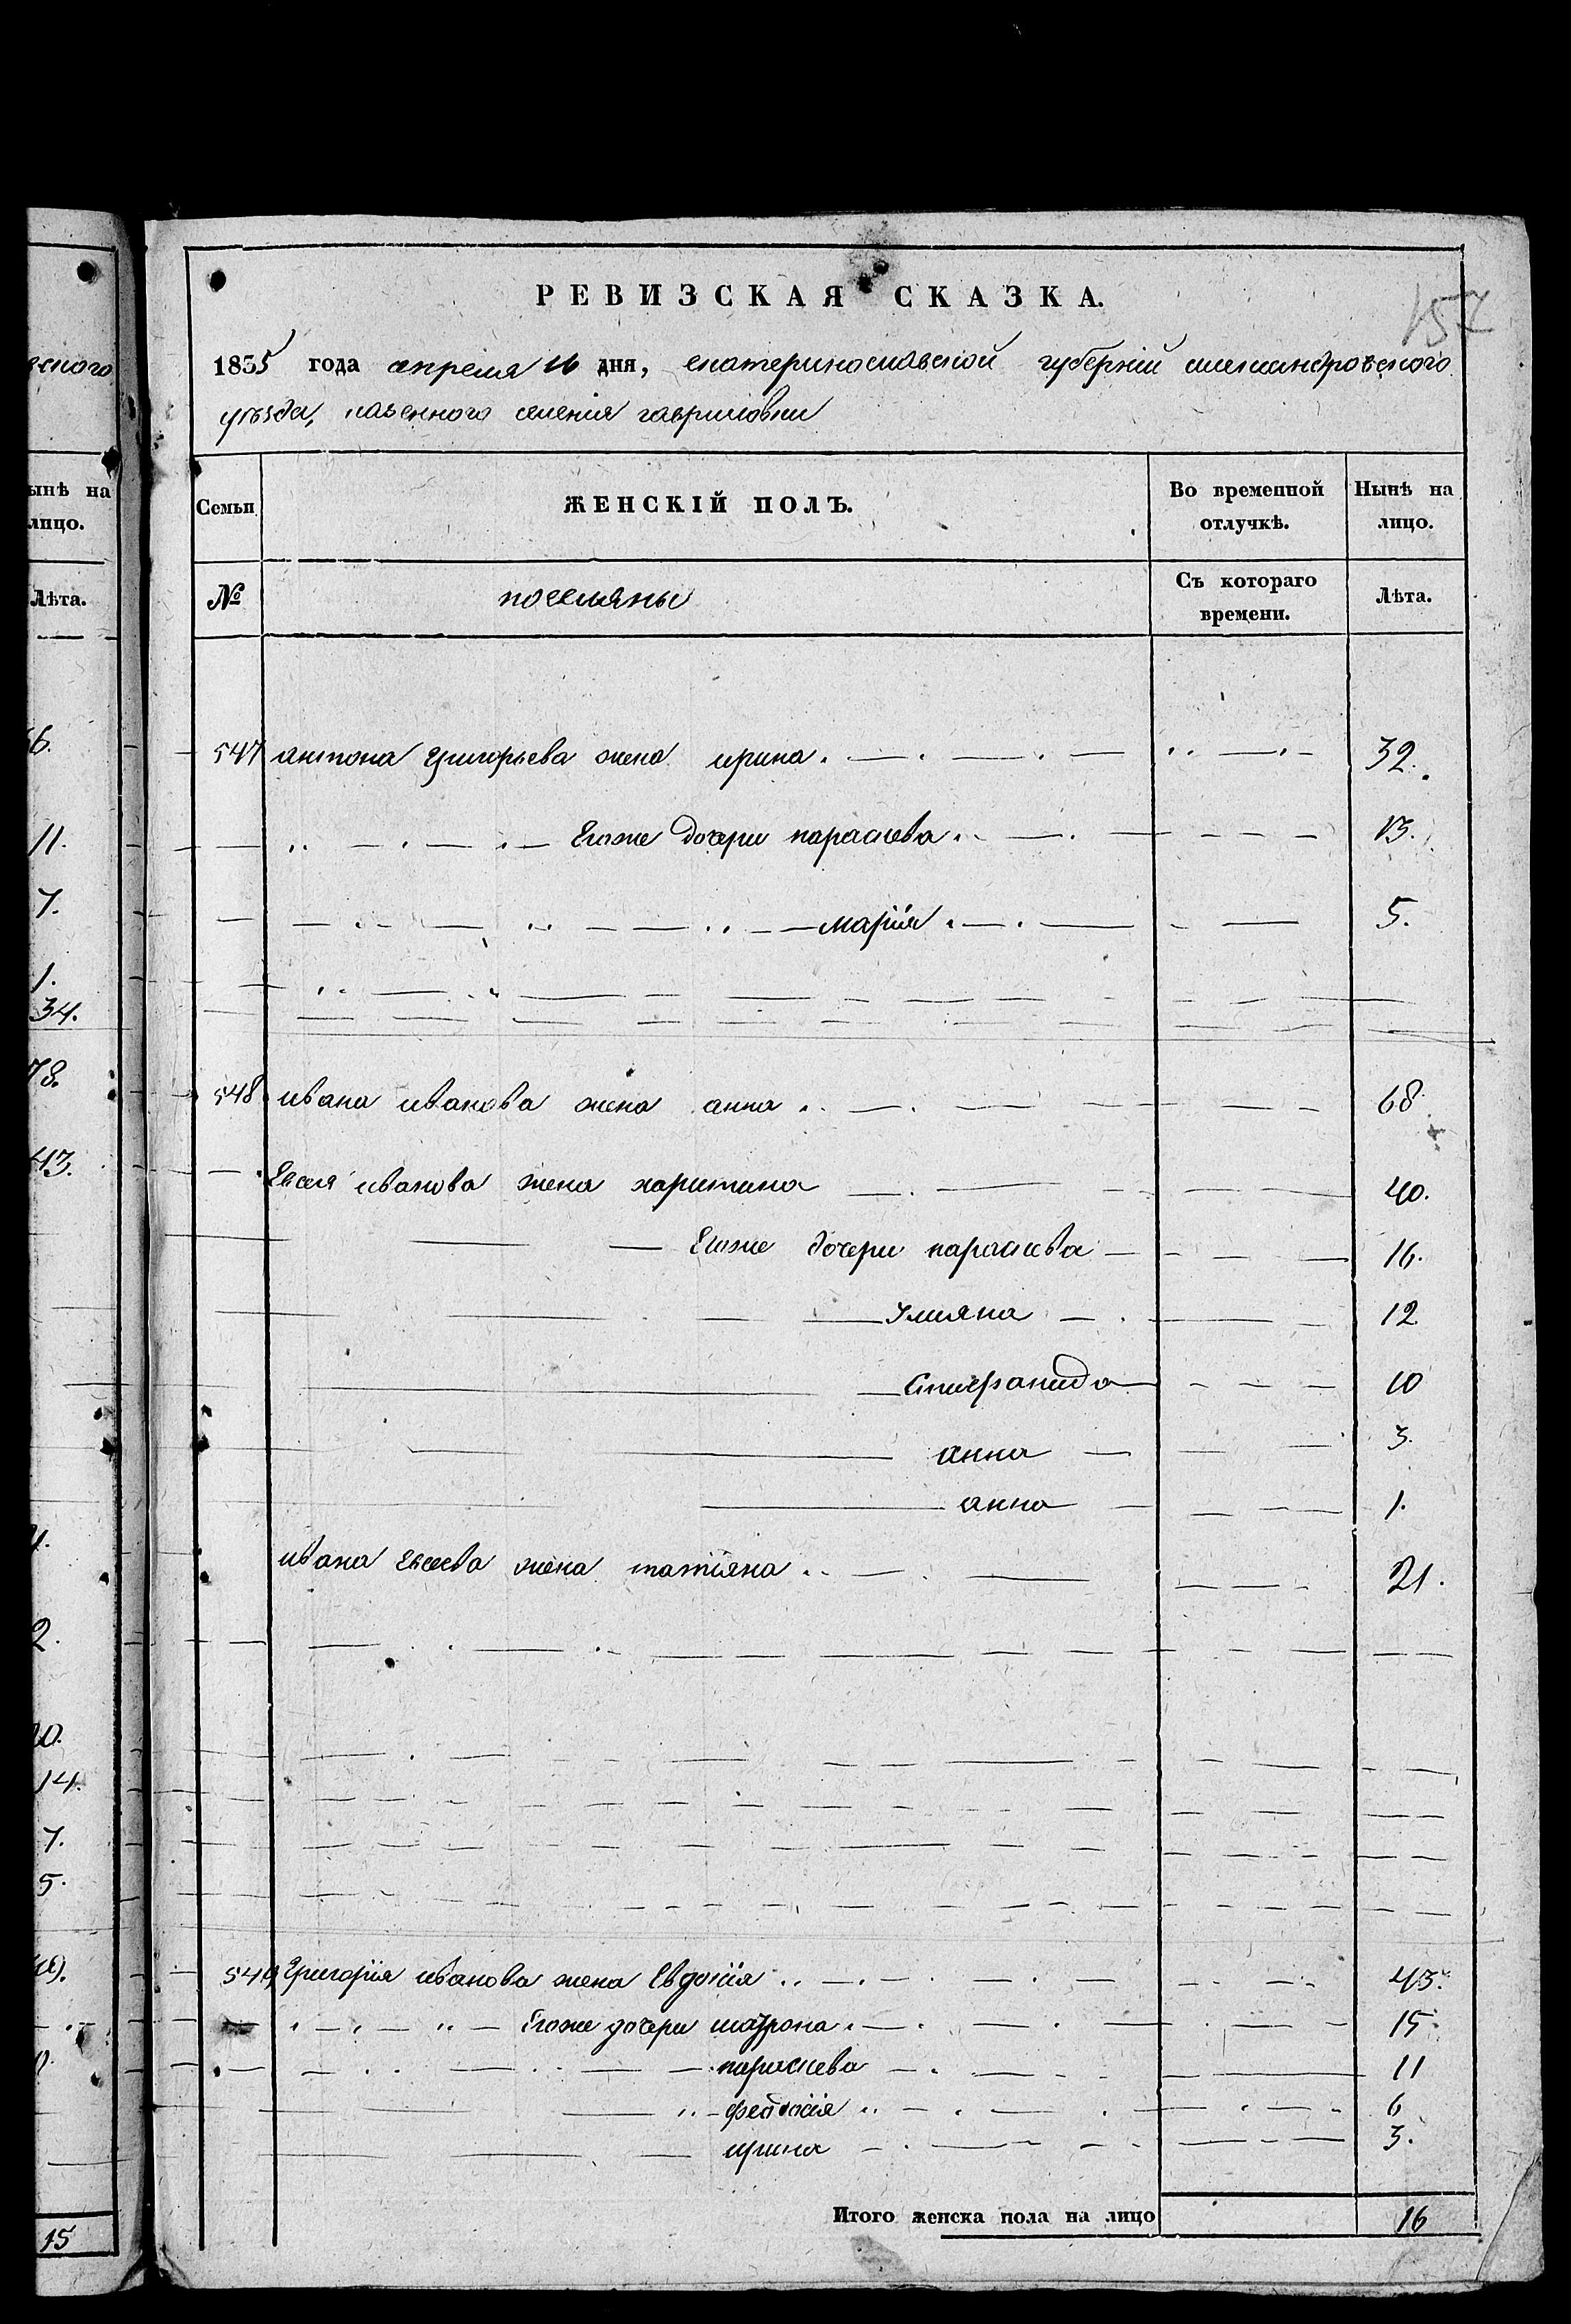 есного
ынѣ на
лицо.
Лѣта.
11.
7.
1.
34.
78.
43.
2.
14.
7.
5.
15
157
РЕВИЗСКАЯ СКАЗКА.
1835 года апреля 16 дня, екатеринославской губернiи александровского
уѣзда, казенного селенiя гавриловки
Семьи ЖЕНСКІЙ ПОЛЪ. Во временной отлучкѣ. Нынѣ на лицо.
№ поселяны Съ котораго времени. Лѣта.
547 антона Григорьева жена ирина 32.
Егоже дочери параскева 13.
марiя 5.
548 ивана иванова жена анна 68
Евсея иванова жена харитина 40.
Егоже дочери параскева 16.
Улияна 12
Стиефанида 10
анна 3.
анна 1.
ивана Евсеева жена татiяна 21.
549 Григорiя иванова жена Евдокiя 43.
Егоже дочери матрона 15.
параскева 11
феодосiя 6
ирина 3.
Итого женска пола на лицо 16